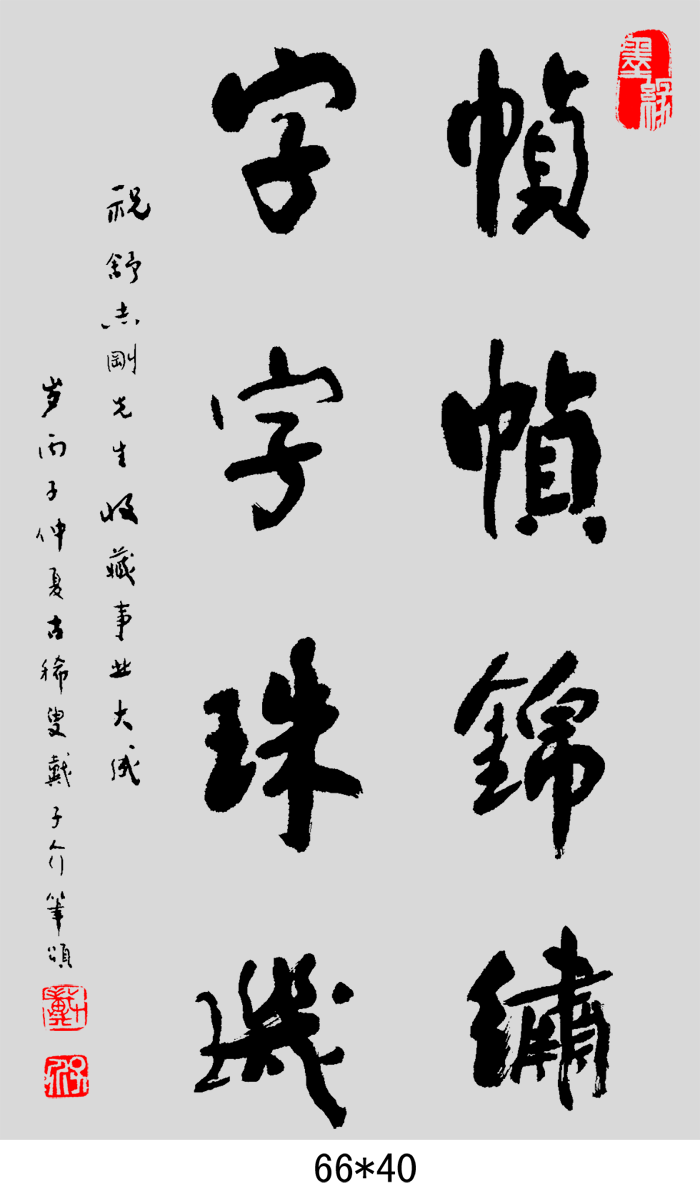 墨緣
幀幀錦繡
字字珠璣
祝舒志剛先生收藏事业大成
岁丙子仲夏古稀叟戴子介笔頌
戴
66*40